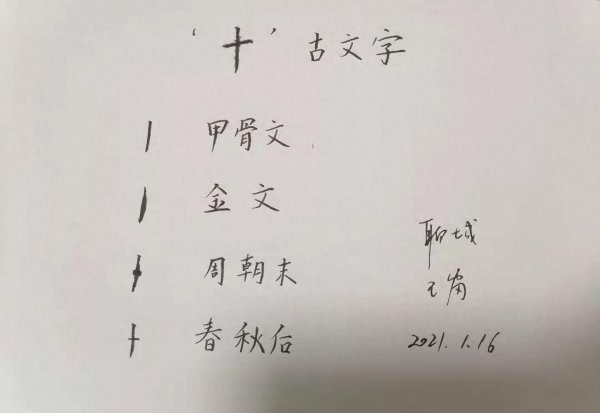 ‘十’古文字
丨 甲骨文
丨 金文
十 周朝末
十 春秋后
聊城
2021.1.16